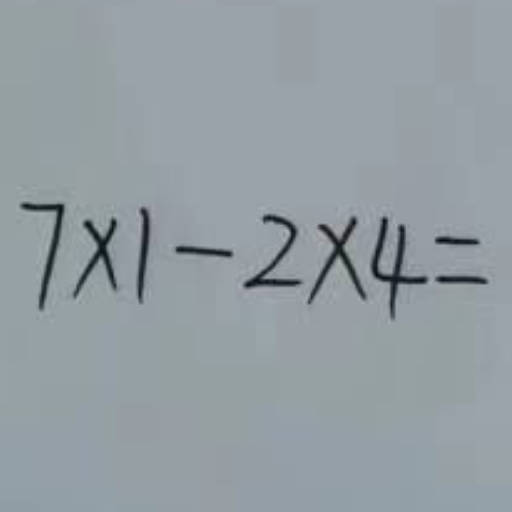 7×1-2×4=